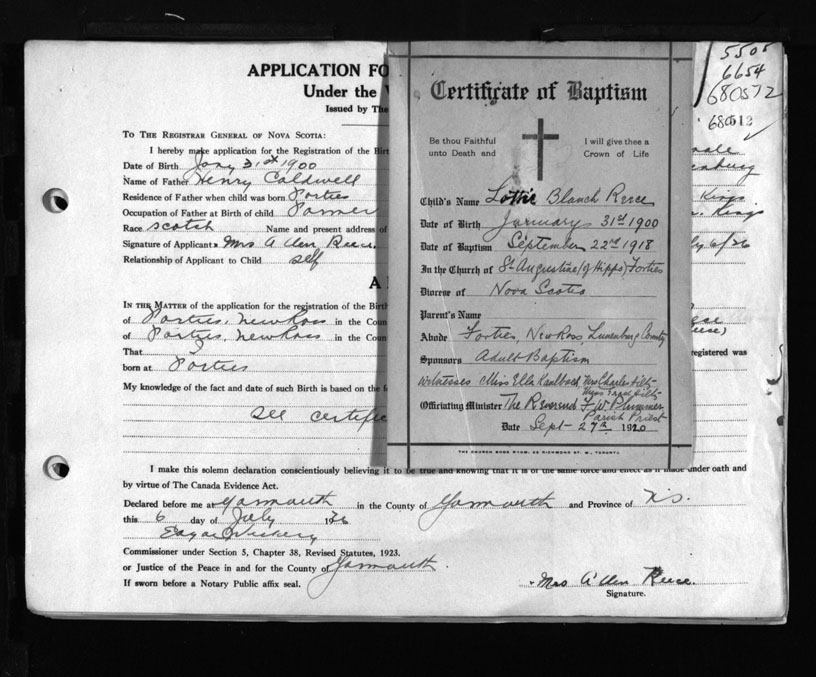 5505
6654
680572
680512
APPLICATION FO
Under the
Issued by The
TO THE REGISTRAR GENERAL OF NOVA SCOTIA:
I hereby make application for the Registration of the Birt
Date of Birth Jany 31st 1900
Name of Father Henry Caldwell
Residence of Father when child was born Forties
Occupation of Father at Birth of child Farmer
Race Scotch Name and present address of
Signature of Applicant Mrs Allen Reece.
Relationship of Applicant to Child self
A
IN THE MATTER of the application for the registration of the Birth
of Forties, New Ross in the Coun
of Forties, New Ross in the Coun
That
born at Forties
registered was
My knowledge of the fact and date of such Birth is based on the f
See certific
Certificate of Baptism
Be thou Faithful unto Death and
I will give thee a Crown of Life
Child's Name Lottie Blanch Reece
Date of Birth January 31st 1900
Date of Baptism September 22nd 1918
In the Church of St Augustine (of Hippo), Forties
Diocese of Nova Scotia
Parent's Name
Abode Forties, New Ross, Lunenburg County
Sponsors Adult Baptism
Witnesses Miss Ella Kaulbach, Mrs Charles Hilts
Officiating Minister The Reverend F W Plummer
Parish Priest
Date Sept- 27th 1920
THE CHURCH BOOK ROOM, TORONTO
I make this solemn declaration conscientiously believing it to be true and knowing that it is of the same force and effect as if made under oath and
by virtue of The Canada Evidence Act.
Declared before me at Yarmouth in the County of Yarmouth and Province of N.S.
this 6 day of July 1926
Commissioner under Section 5, Chapter 38, Revised Statutes, 1923.
or Justice of the Peace in and for the County of Yarmouth.
If sworn before a Notary Public affix seal.
Mrs Allen Reece.
Signature.